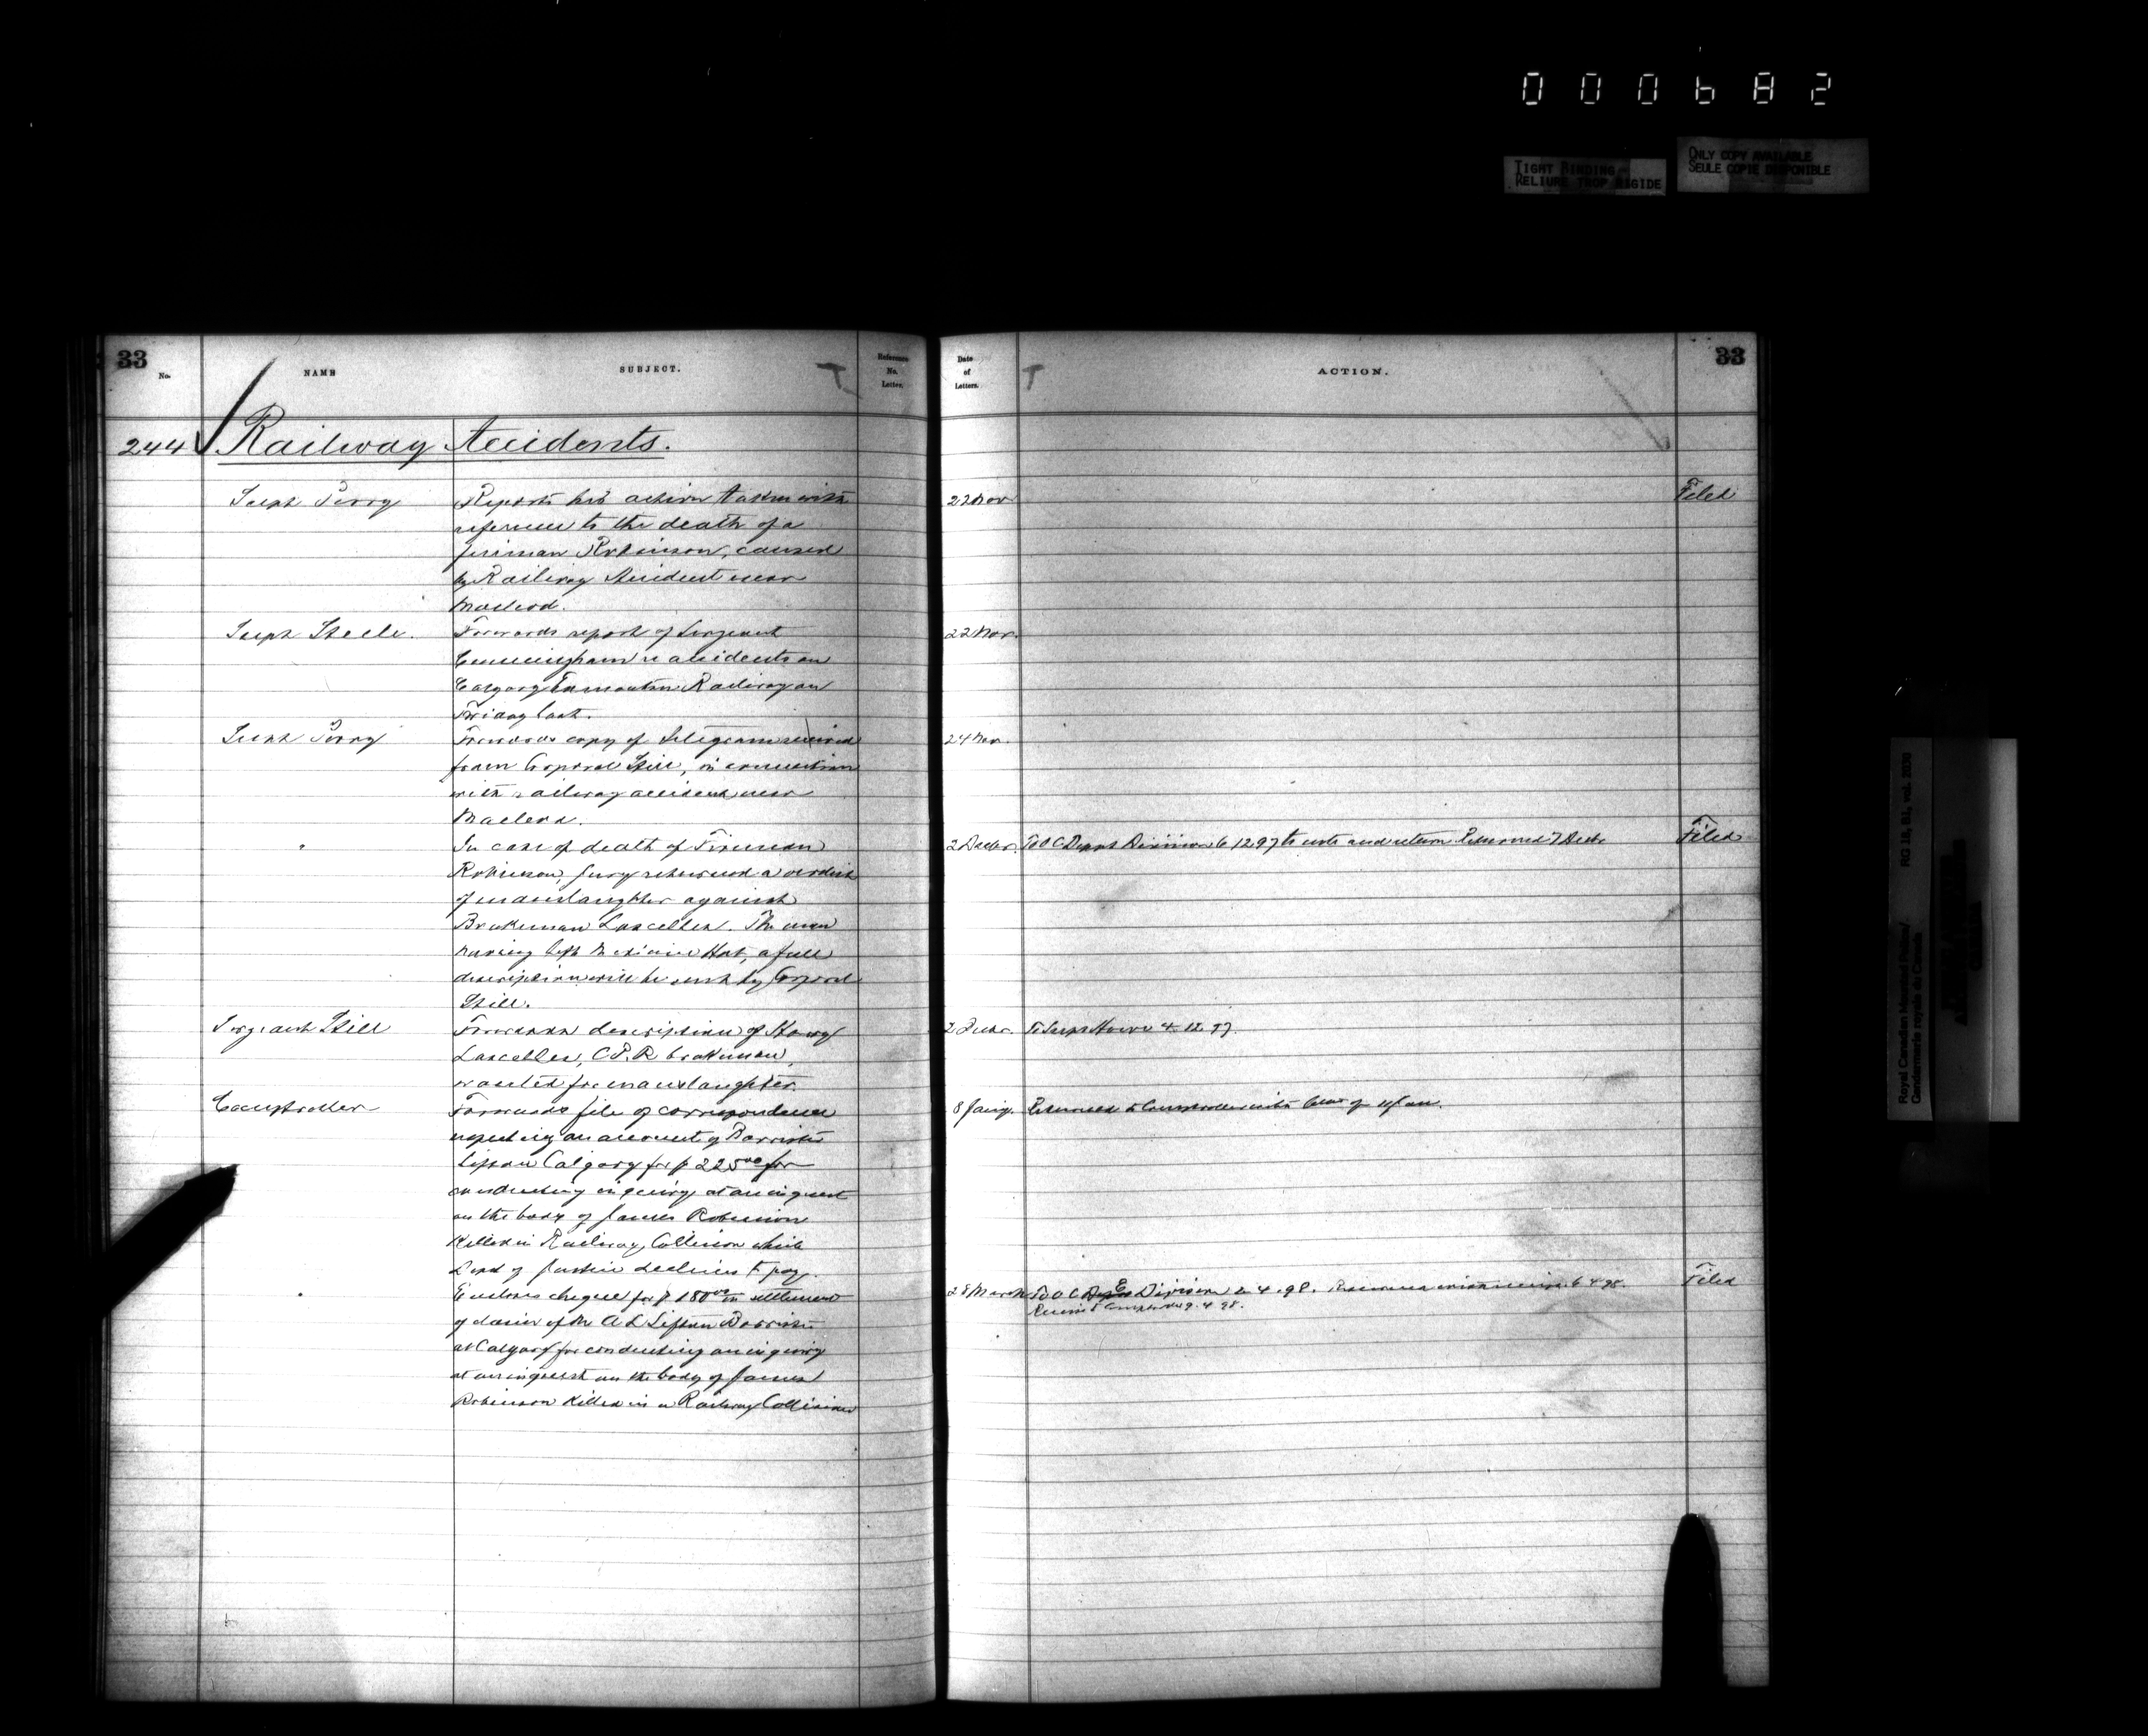 000682
TIGHT BINDING
RELIURE TROP RIGIDE
ONLY COPY AVAILABLE
SEULE COPIE DISPONIBLE
33
No.
NAME
SUBJECT.
T
Reference
No.
Letter.
244 Railway Accidents.
Supt Perry
Reports his action taken with
reference to the death of a
fireman Robinson, caused
by Railway Accident near
Macleod.
Supt Steele.
Forwards report of Sergeant
Cunningham re accidents on
Calgary Edmonton Railway on
Friday last.
Supt Perry
Forwards copy of telegram received
from Corporal Still, in connection
with railway accident near
Macleod.
"
In case of death of Fireman
Robinson, Jury returned a verdict
of manslaughter against
Brakeman Lascelles. The man
having left Medicine Hat, a full
description will be sent by Corporal
Still.
Sergeant Still
Forwards description of
Lascelles, C.P.R brakeman,
wanted for manslaughter.
Comptroller
Forwards file of correspondence
respecting an account of Barrister
Sifton Calgary for $ 225 00 for
conducting inquiry at an inquest
on the body of James Robinson
Killed in Railway Collision which
Dept of Justice declines to pay.
"
Encloses cheque for $ 180 00 in settlement
of claim of Mr A L Sifton Barrister
at Calgary for conducting an inquiry
at an inquest on the body of James
Robinson Killed in a Railway Collision
Date
of
Letters.
T
ACTION.
33
22 Nov
Filed
22 Nov.
24 Nov.
2 Decbr. To O C Depot Division 6 12 97 to note and return Returned 7 Decbr
Filed
2 Decbr. To Supt Howe 4. 12. 97.
8 Jany. Returned to Comptroller with of 11 Jan.
28 March To O C Depot E Division 2. 4. 98. Returned 6 4 98.
Filed
Comptroller 9. 4. 98.
Royal Canadian Mounted Police/
Gendarmerie royale du Canada
RG 18, B1, vol. 2030